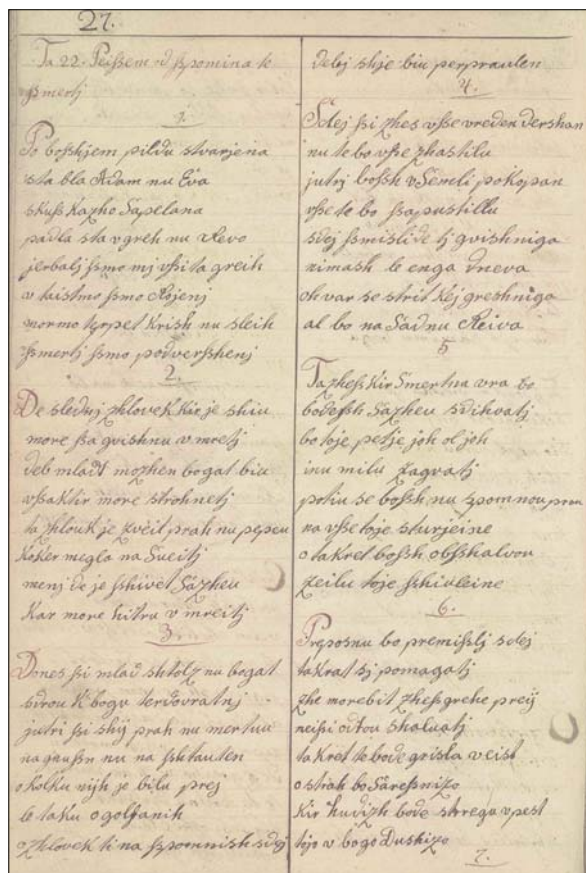 27.
Ta 22. Peissem nd sspomina te
ssmertj
1
Po bosshjem pildu stvarjena
sta bla Adam nu Eva
skuss Kazho Sapelana
padla sta v greh nu Revo
jerbalj ssmo mj vssi ta greih
v taistmo ssmo Rojenj
mormo terpet Krish nu sleih
ssmertj ssmo podversshenj
2.
De slednj zhlovek kir je shiu
more ssa gvishnu v mretj
deb mladt mozhen bogat biu
vssaktir more strohnetj
ta zhlouk je zvéit prah nu pepeu
Koker megla na Sveitj
menj de je sshivet Sazheu
Kar more hitru v mreitj
3
Dones ssi mlad shtolz nu bogat
sdrou K bogu terdovratnj
jutri ssi shij prah nu mertuu
nagnussn nu na sshtauten
okolku nijh je bilu prej
le taku ogolfanih
ozhlovek ti na sspomnish sdej
debej shje biu perprauten
4.
Sdej ssi zhes vsse vreden dershan
nu te bo vsse zhastilu
jutrj bossh v Semli pokopan
vsse te bo ssapustillu
sdej ssmisli de tj gvishniga
nimash le enga dneva
oh var se strit kej greshniga
al bo na Sadnu Reiva
5
Ta zhess Kir Smertna vra bo
bodessh Sazheu sdihvatj
bo toje petje joh ol joh
inu milu zagvatj
potiu se bossh nu spomnou prou
na vsse toje sturjeine
o takret bossh obsshalvou
zeilu toje sshiuleine
6.
Preposnu bo premisslj sdej
takrat sj pomagatj
zhe morebit zhess grehe preij
neissi odtou shaluatj
takret te bode grisla veist
o strah bo Saressnizo
Kir hudizh bode stregu v pest
tojo v bogo Dushizo
7.